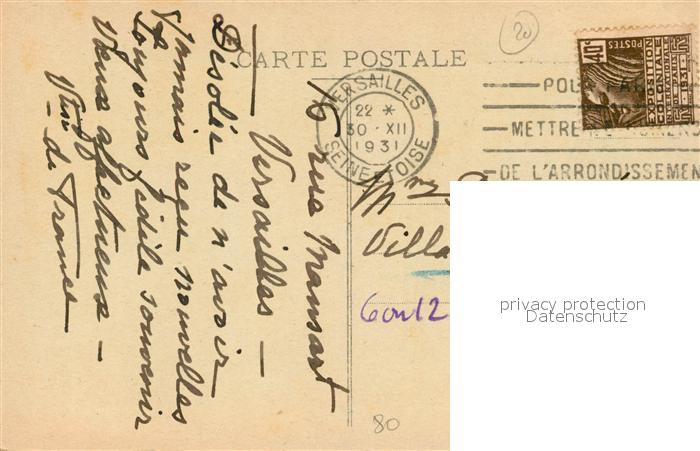 CARTE POSTALE
20
16 rue Mansart
Versailles —
Désolée de n'avoir
jamais reçu nouvelles
Toujours fidèle souvenir
Vœux affectueux —
de France
VERSAILLES
22 *
30 · XII
1931
SEINE ET OISE
40c
POSTES
EXPOSITION
COLONIALE
INTERNATIONALE
PARIS 1931
POUR
METTRE
DE L'ARRONDISSEMEN
M
Villa
6 ou 12
80
privacy protection
Datenschutz